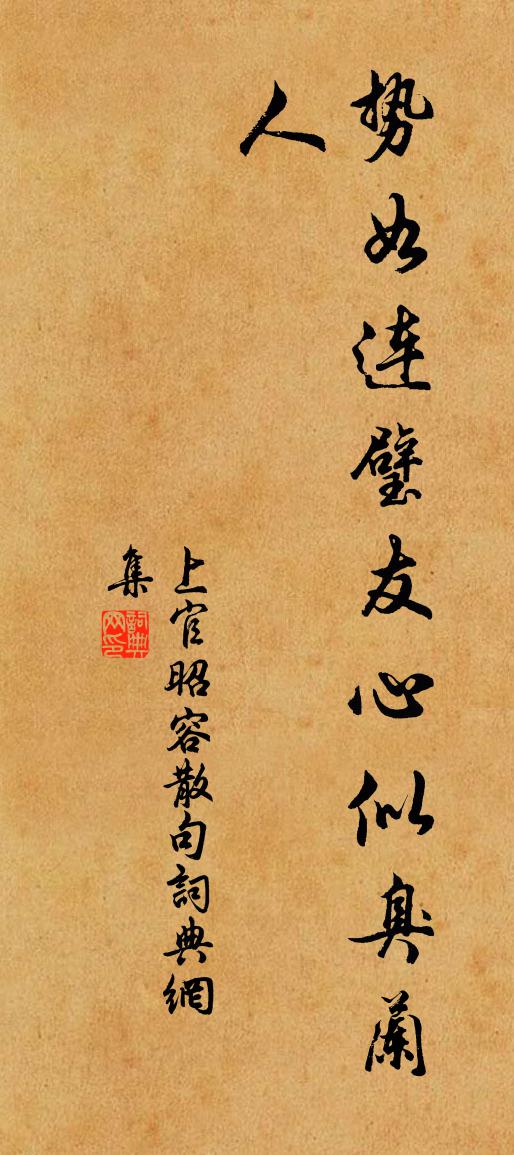 势如連璧友心似臭蘭
人
上官昭容散句詞典網
集
詞典網印